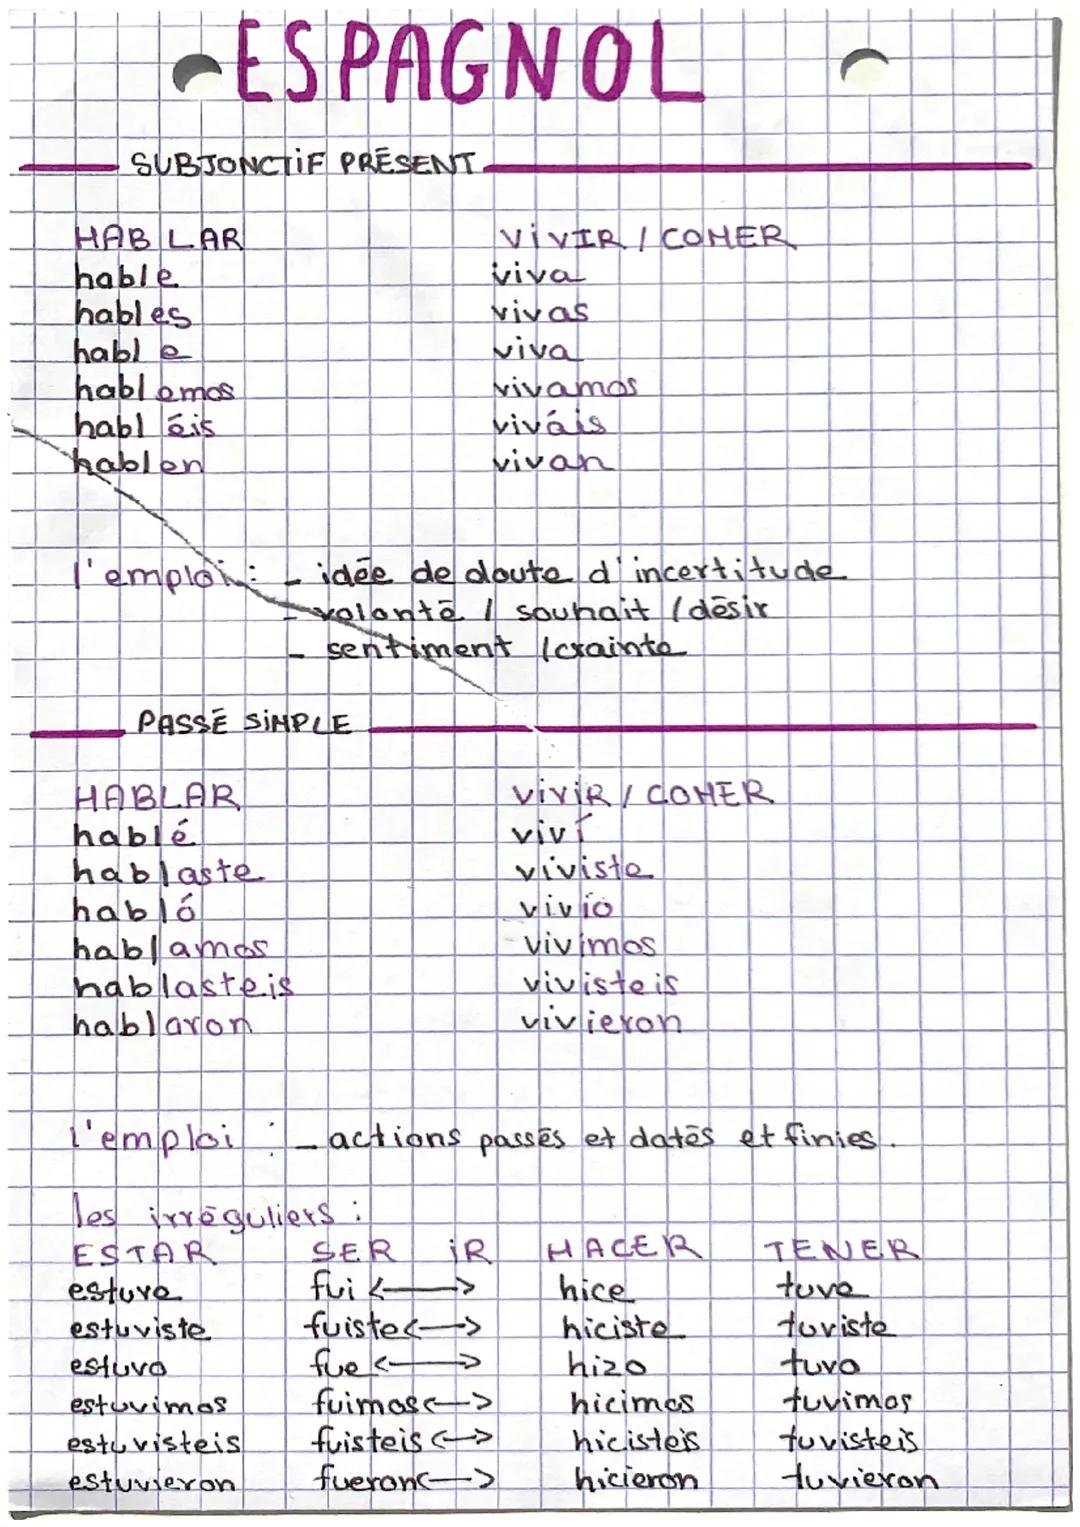 ESPAGNOL
SUBJONCTIF PRÉSENT
HABLAR VIVIR / COMER
hable viva
hables vivas
hable viva
hablemos vivamos
habléis viváis
hablen vivan
l'emploi : - idée de doute d'incertitude
- volonté / souhait / désir
- sentiment / crainte
PASSÉ SIMPLE
HABLAR VIVIR / COMER
hablé viví
hablaste viviste
habló vivío
hablamos vivimos
hablasteis vivisteis
hablaron vivieron
l'emploi : - actions passés et datés et finies.
les irréguliers :
ESTAR SER IR HACER TENER
estuve fui <-> hice tuve
estuviste fuiste <-> hiciste tuviste
estuvo fue <-> hizo tuvo
estuvimos fuimos <-> hicimos tuvimos
estuvisteis fuisteis <-> hicisteis tuvisteis
estuvieron fueron <-> hicieron tuvieron